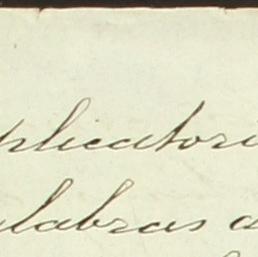 plicatori
alabras a